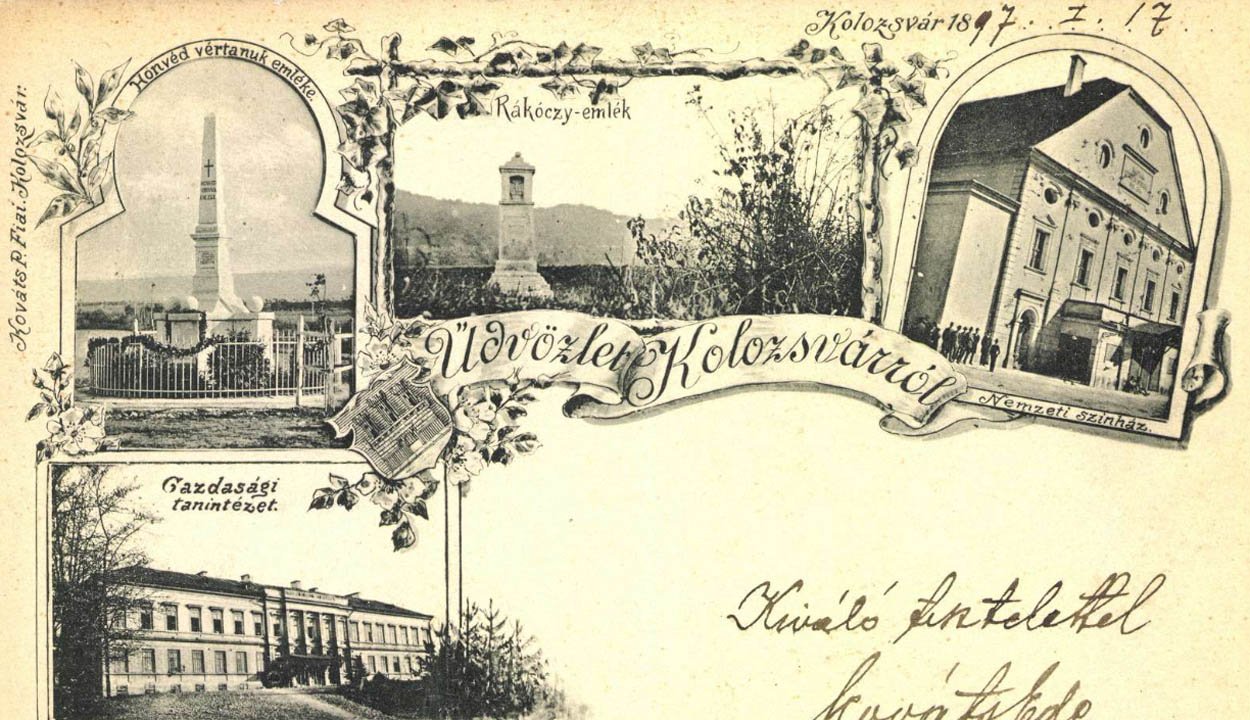 Kolozsvár 1897. I. 17.
Honvéd vértanuk emléke.
Rákóczy-emlék
Kováts P. Fiai, Kolozsvár.
Üdvözlet Kolozsvárról
Nemzeti szinház.
Gazdasági
tanintézet.
Kiváló tisztelettel